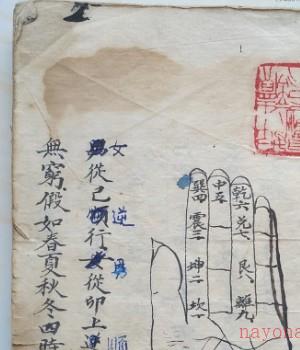 乾六
兌七
艮八
離九
中五
巽四
震三
坤二
坎一
女逆男順
從己順行女從卯上
無窮假如春夏秋冬四時
nayona